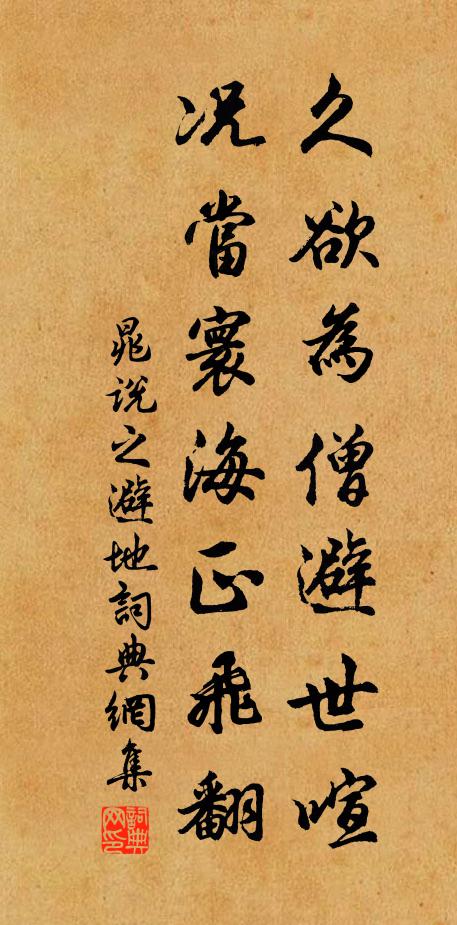 久欲為僧避世喧
况當寰海正飛翻
晁説之避地詞典網集
詞典
网印